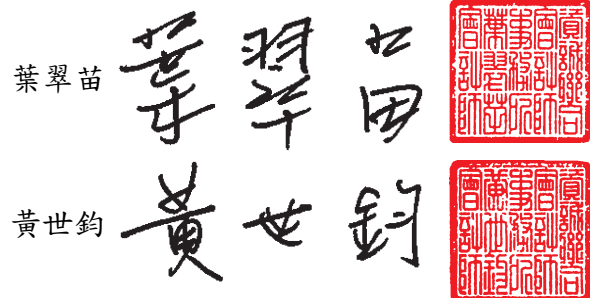 葉翠苗 葉翠苗
資誠聯合
會計師
事務所
葉翠苗
會計師
黃世鈞 黃世鈞
資誠聯合
會計師
事務所
黃世鈞
會計師